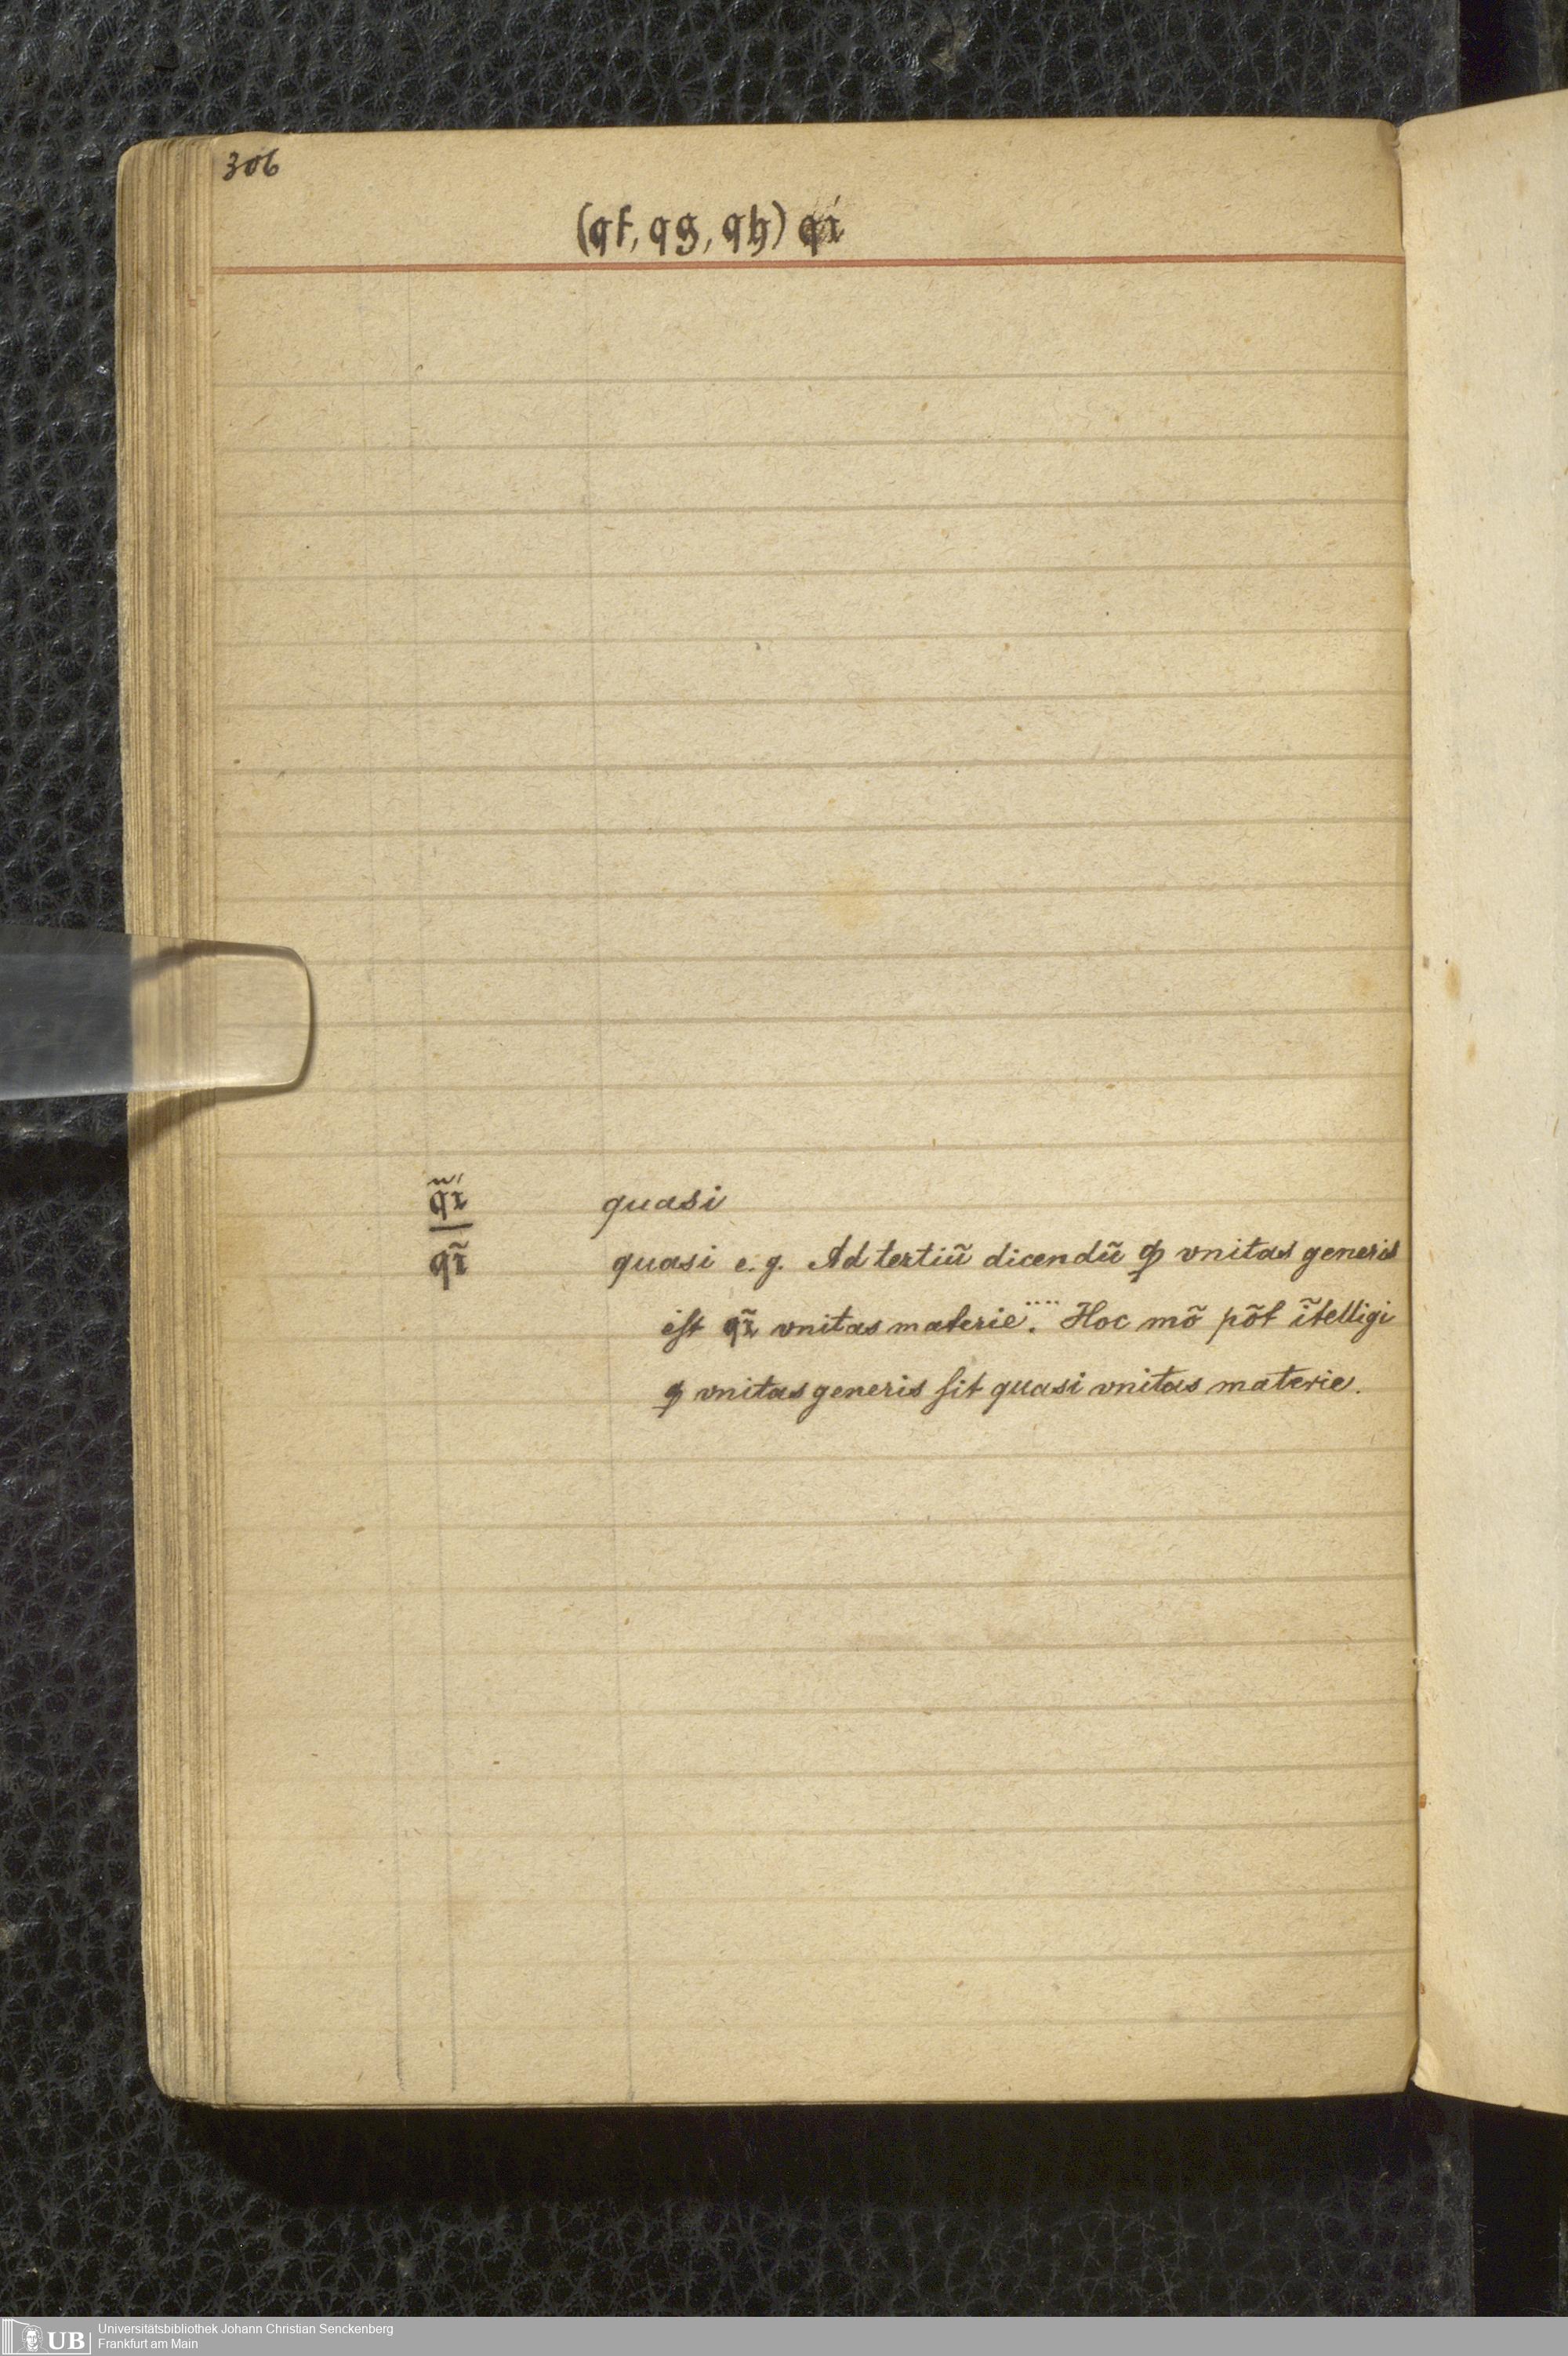 306
(qf, qg, qh) qi
q̃i quasi
qĩ quasi e. g. Ad tertiũ dicendũ ꝙ vnitas generis
eſt qĩ vnitas materie. .... Hoc mõ põt ĩtelligi
ꝙ vnitas generis ſit quasi vnitas materie.
UB Universitätsbibliothek Johann Christian Senckenberg
Frankfurt am Main